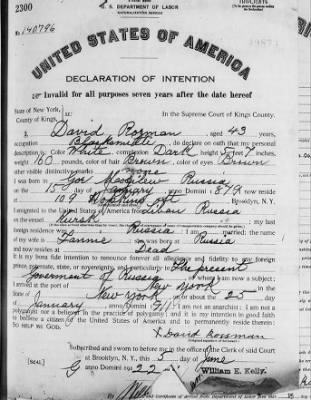 2300
U. S. DEPARTMENT OF LABOR
NATURALIZATION SERVICE
No. 140796
UNITED STATES OF AMERICA
DECLARATION OF INTENTION
Invalid for all purposes seven years after the date hereof
State of New York,
County of Kings,
In the Supreme Court of Kings County.
I, David Rosman, aged 43 years,
occupation Blacksmith, do declare on oath that my personal
description is: Color White, complexion Dark, height 5 feet 7 inches,
weight 160 pounds, color of hair Brown, color of eyes Brown
other visible distinctive marks none
I was born in Russia
on the 15 day of January, anno Domini 1879; now reside
at 109 Hopkins St., Brooklyn, N.Y.
I emigrated to the United States of America from Libau Russia
on the vessel Kursk; my last
foreign residence was Russia. I am married; the name
of my wife is Fannie; she was born at Russia
and now resides at Dead
It is my bona fide intention to renounce forever all allegiance and fidelity to any foreign
prince, potentate, state, or sovereignty, and particularly to The present
Government of Russia, of whom I am now a subject;
I arrived at the port of New York, in the
State of New York, on or about the 25 day
of January, anno Domini 1911; I am not an anarchist; I am not a
polygamist nor a believer in the practice of polygamy; and it is my intention in good faith
to become a citizen of the United States of America and to permanently reside therein:
SO HELP ME GOD.
David Rossman
Subscribed and sworn to before me in the office of the Clerk of said Court
at Brooklyn, N. Y., this 5 day of June
[SEAL]
anno Domini 1922
William E. Kelly